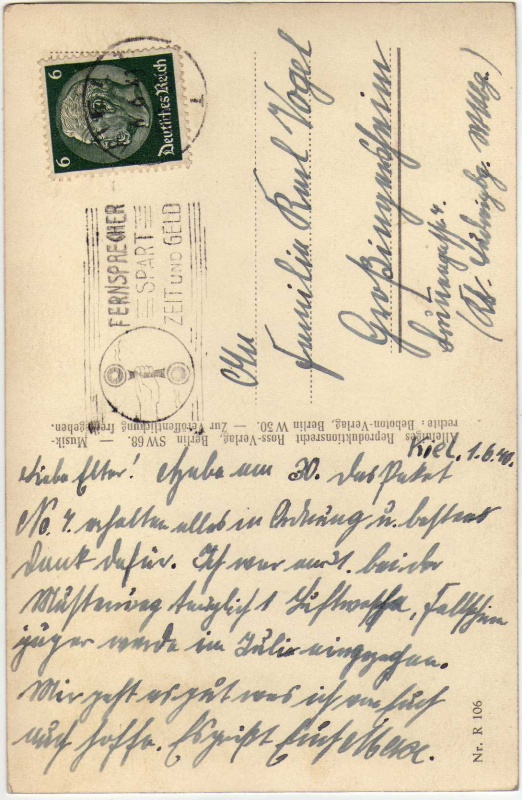 6
6
Deutsches Reich
FERNSPRECHER
SPART
ZEIT UND GELD
An
Familie Karl Vogel
Großingersheim
(Kr. Ludwigsbg. Wttbg.)
Alleiniges Reproduktionsrecht Ross-Verlag, Berlin SW 68. — Musik-
rechte: Beboton-Verlag, Berlin W 50. — Zur Veröffentlichung freigegeben.
Kiel, 1.6.40.
Liebe Elter! Habe am 30. das Paket
No. 4. erhalten alles in Ordnung u. bestens
Dank dafür. Ich war bei der
Musterung tauglich 1 Luftwaffe, Fallschirm
jäger werde im Juli eingezogen.
Mir geht es gut was ich von Euch
auch hoffe. Es grüßt Euch
Nr. R 106